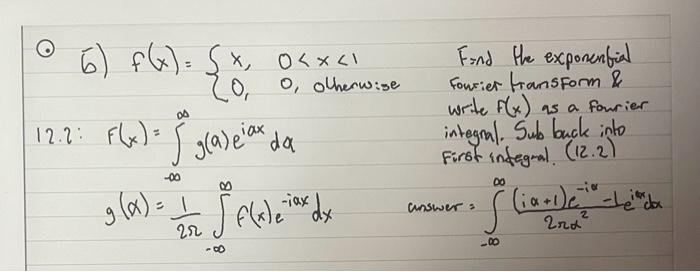 5) f(x) = { x, 0 < x < 1
0, 0, otherwise
Find the exponential
Fourier transform &
write f(x) as a Fourier
integral. Sub back into
First integral. (12.2)
12.2: f(x) = ∫_{-∞}^{∞} g(α) e^{iαx} dα
g(α) = 1/2π ∫_{-∞}^{∞} f(x) e^{-iαx} dx
answer = ∫_{-∞}^{∞} (iα+1)e^{-iα} - 1 / 2πα² e^{iαx} dα